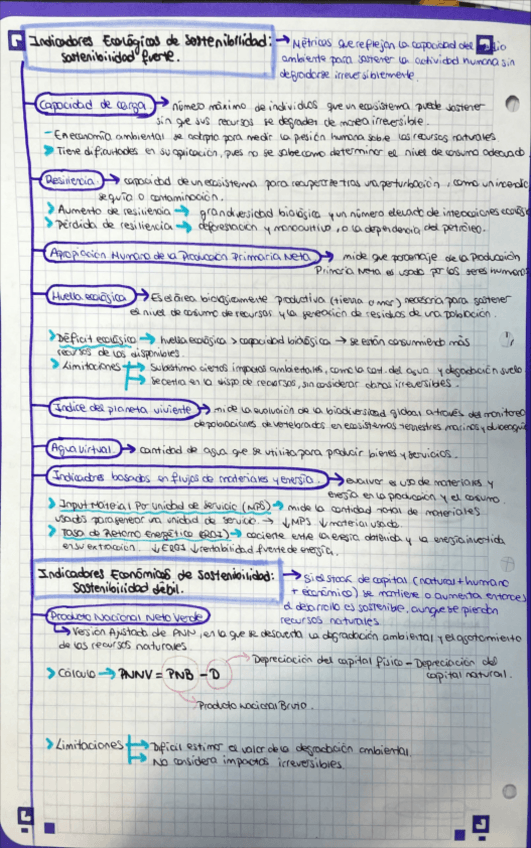 Indicadores Ecológicos de Sostenibilidad: → Métricas que reflejan la capacidad del
sostenibilidad fuerte. ambiente para sostener la actividad humana sin
degradarse irreversiblemente.
Capacidad de carga → número máximo de individuos que un ecosistema puede sostener
sin que sus recursos se degraden de manera irreversible.
- En economía ambiental se adapta para medir la presión humana sobre los recursos naturales
> Tiene dificultades en su aplicación, pues no se sabe como determinar el nivel de consumo adecuado
Resiliencia → capacidad de un ecosistema para recuperarse tras una perturbación, como un incendio
sequía o contaminación.
> Aumento de resiliencia → gran diversidad biológica y un número elevado de interacciones ecológ
> Pérdida de resiliencia → deforestación y monocultivo, o la dependencia del petróleo.
Apropiación Humana de la Producción Primaria Neta → mide que porcentaje de la Producción
Primaria Neta es usado por los seres humanos
Huella ecológica → Es el área biológicamente productiva (tierra o mar) necesaria para sostener
el nivel de consumo de recursos y la generación de residuos de una población.
> Déficit ecológico → huella ecológica > capacidad biológica → se están consumiendo más
recursos de los disponibles.
> Limitaciones → Subestima ciertos impactos ambientales, como la cont. del agua y degradación suelo
→ Se centra en la dispo de recursos, sin considerar daños irreversibles.
Índice del planeta viviente → mide la evolución de la biodiversidad global a través del monitoreo
de poblaciones de vertebrados en ecosistemas terrestres marinos y
Agua virtual → cantidad de agua que se utilita para producir bienes y servicios.
Indicadores basados en flujos de materiales y energía. → evaluar el uso de materiales y
energía en la producción y el consumo.
> Input Material Por unidad de Servicio (MPS) → mide la cantidad total de materiales
usados para generar una unidad de servicio. → ↓MPS ↓material usado.
> Tasa de Retorno Energético (EROI) → cociente entre la energía obtenida y la energía invertida
en su extracción. ↓EROI ↓rentabilidad fuente de energía.
Indicadores Económicos de Sostenibilidad: → Si el stock de capital (natural + humano
Sostenibilidad débil. + económico) se mantiene o aumenta entonces
el desarrollo es sostenible, aunque se pierdan
recursos naturales.
Producto Nacional Neto Verde
→ Versión Ajustada de PNN, en la que se descuenta la degradación ambiental y el agotamiento
de los recursos naturales.
Depreciación del capital físico - Depreciación del
capital natural.
> Cálculo → PNNV = PNB - D
Producto Nacional Bruto.
> Limitaciones → Difícil estimar el valor de la degradación ambiental
→ No considera impactos irreversibles.